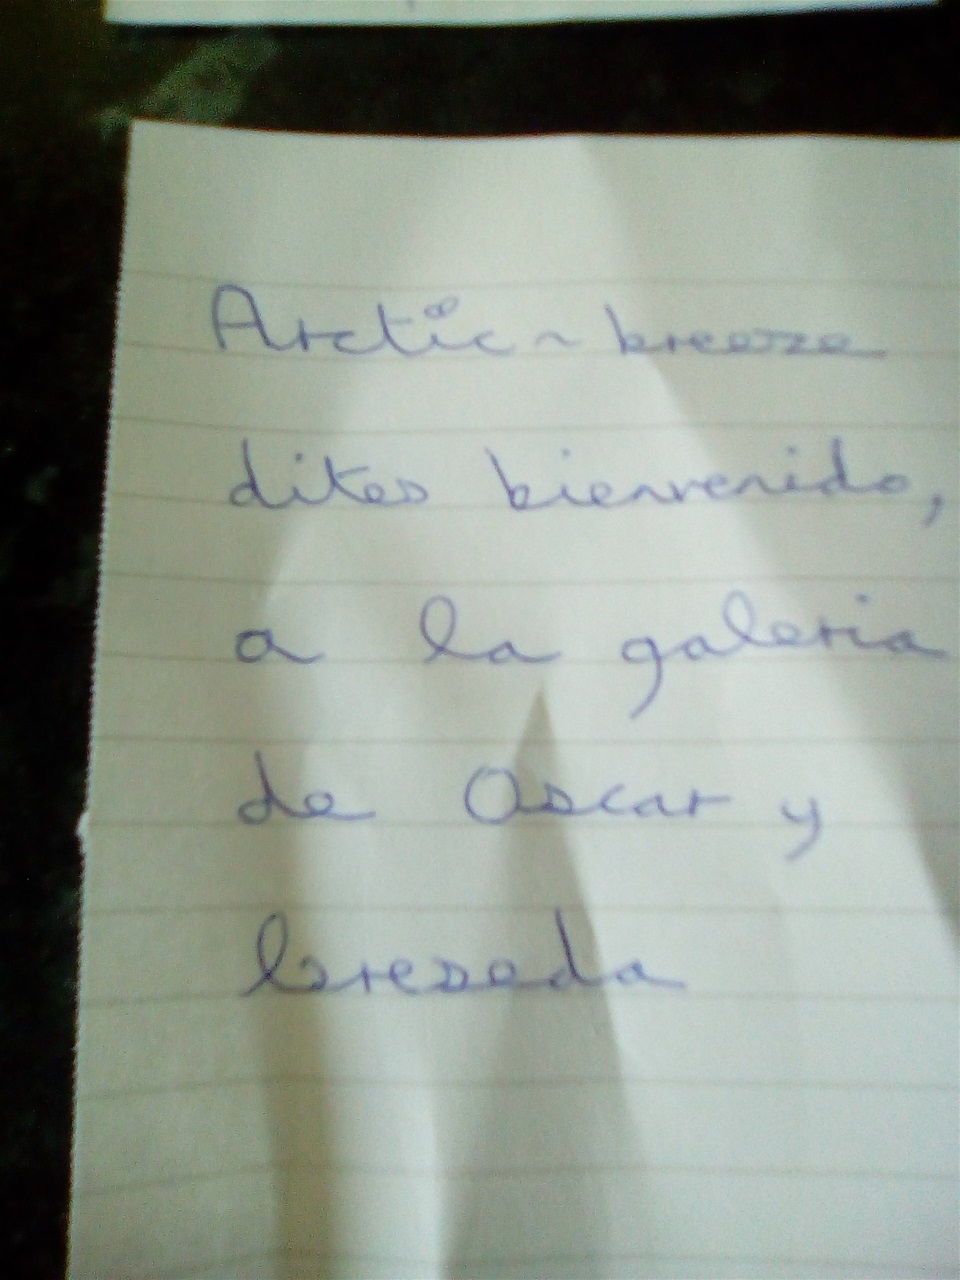 Arctic~breeze
dites bienvenido,
a la galeria
de Oscar y
breseda